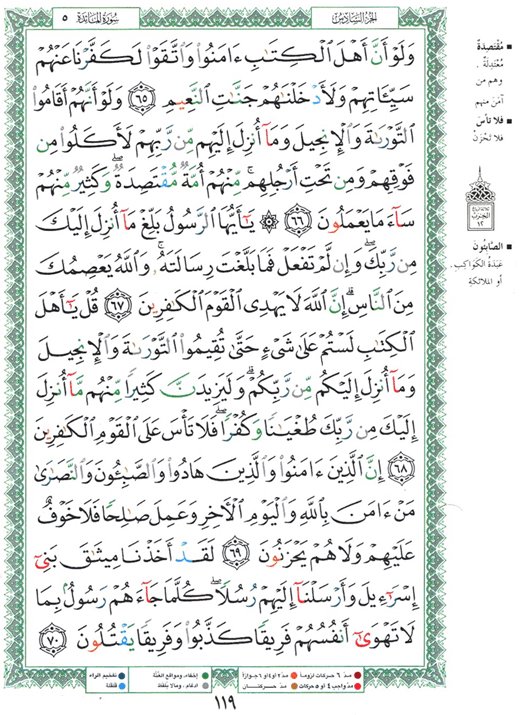 الجزء السادس
سورة المائدة ٥
وَلَوْ أَنَّ أَهْلَ ٱلْكِتَٰبِ ءَامَنُوا۟ وَٱتَّقَوْا۟ لَكَفَّرْنَا عَنْهُمْ
سَيِّـَٔاتِهِمْ وَلَأَدْخَلْنَٰهُمْ جَنَّٰتِ ٱلنَّعِيمِ ٦٥ وَلَوْ أَنَّهُمْ أَقَامُوا۟
ٱلتَّوْرَىٰةَ وَٱلْإِنجِيلَ وَمَآ أُنزِلَ إِلَيْهِم مِّن رَّبِّهِمْ لَأَكَلُوا۟ مِن
فَوْقِهِمْ وَمِن تَحْتِ أَرْجُلِهِم ۚ مِّنْهُمْ أُمَّةٌ مُّقْتَصِدَةٌ ۖ وَكَثِيرٌ مِّنْهُمْ
سَآءَ مَا يَعْمَلُونَ ٦٦ ۞ يَٰٓأَيُّهَا ٱلرَّسُولُ بَلِّغْ مَآ أُنزِلَ إِلَيْكَ
مِن رَّبِّكَ ۖ وَإِن لَّمْ تَفْعَلْ فَمَا بَلَّغْتَ رِسَالَتَهُۥ ۚ وَٱللَّهُ يَعْصِمُكَ
مِنَ ٱلنَّاسِ ۗ إِنَّ ٱللَّهَ لَا يَهْدِى ٱلْقَوْمَ ٱلْكَٰفِرِينَ ٦٧ قُلْ يَٰٓأَهْلَ
ٱلْكِتَٰبِ لَسْتُمْ عَلَىٰ شَىْءٍ حَتَّىٰ تُقِيمُوا۟ ٱلتَّوْرَىٰةَ وَٱلْإِنجِيلَ
وَمَآ أُنزِلَ إِلَيْكُم مِّن رَّبِّكُمْ ۗ وَلَيَزِيدَنَّ كَثِيرًا مِّنْهُم مَّآ أُنزِلَ
إِلَيْكَ مِن رَّبِّكَ طُغْيَٰنًا وَكُفْرًا ۖ فَلَا تَأْسَ عَلَى ٱلْقَوْمِ ٱلْكَٰفِرِينَ
٦٨ إِنَّ ٱلَّذِينَ ءَامَنُوا۟ وَٱلَّذِينَ هَادُوا۟ وَٱلصَّٰبِـُٔونَ وَٱلنَّصَٰرَىٰ
مَنْ ءَامَنَ بِٱللَّهِ وَٱلْيَوْمِ ٱلْـَٔاخِرِ وَعَمِلَ صَٰلِحًا فَلَا خَوْفٌ
عَلَيْهِمْ وَلَا هُمْ يَحْزَنُونَ ٦٩ لَقَدْ أَخَذْنَا مِيثَٰقَ بَنِىٓ
إِسْرَٰٓءِيلَ وَأَرْسَلْنَآ إِلَيْهِمْ رُسُلًا ۖ كُلَّمَا جَآءَهُمْ رَسُولٌۢ بِمَا
لَا تَهْوَىٰٓ أَنفُسُهُمْ فَرِيقًا كَذَّبُوا۟ وَفَرِيقًا يَقْتُلُونَ ٧٠
مُقْتَصِدةٌ
مُعْتَدِلةٌ.
وهم من
آمن منهم
فلا تأسَ
فلا تَحْزَنْ
الحزب
١٢
الصّابئون
عَبَدَةُ الكواكبِ.
أو الملائكةِ
مدّ ٦ حركات لزوماً
مدّ ٢ أو ٤ أو ٦ جوازاً
إخفاء، ومواقع الغُنَّة
تفخيم الراء
مدّ واجب ٤ أو ٥ حركات
مدّ حركتان
ادغام، وما لا يُلفظ
قلقلة
١١٩